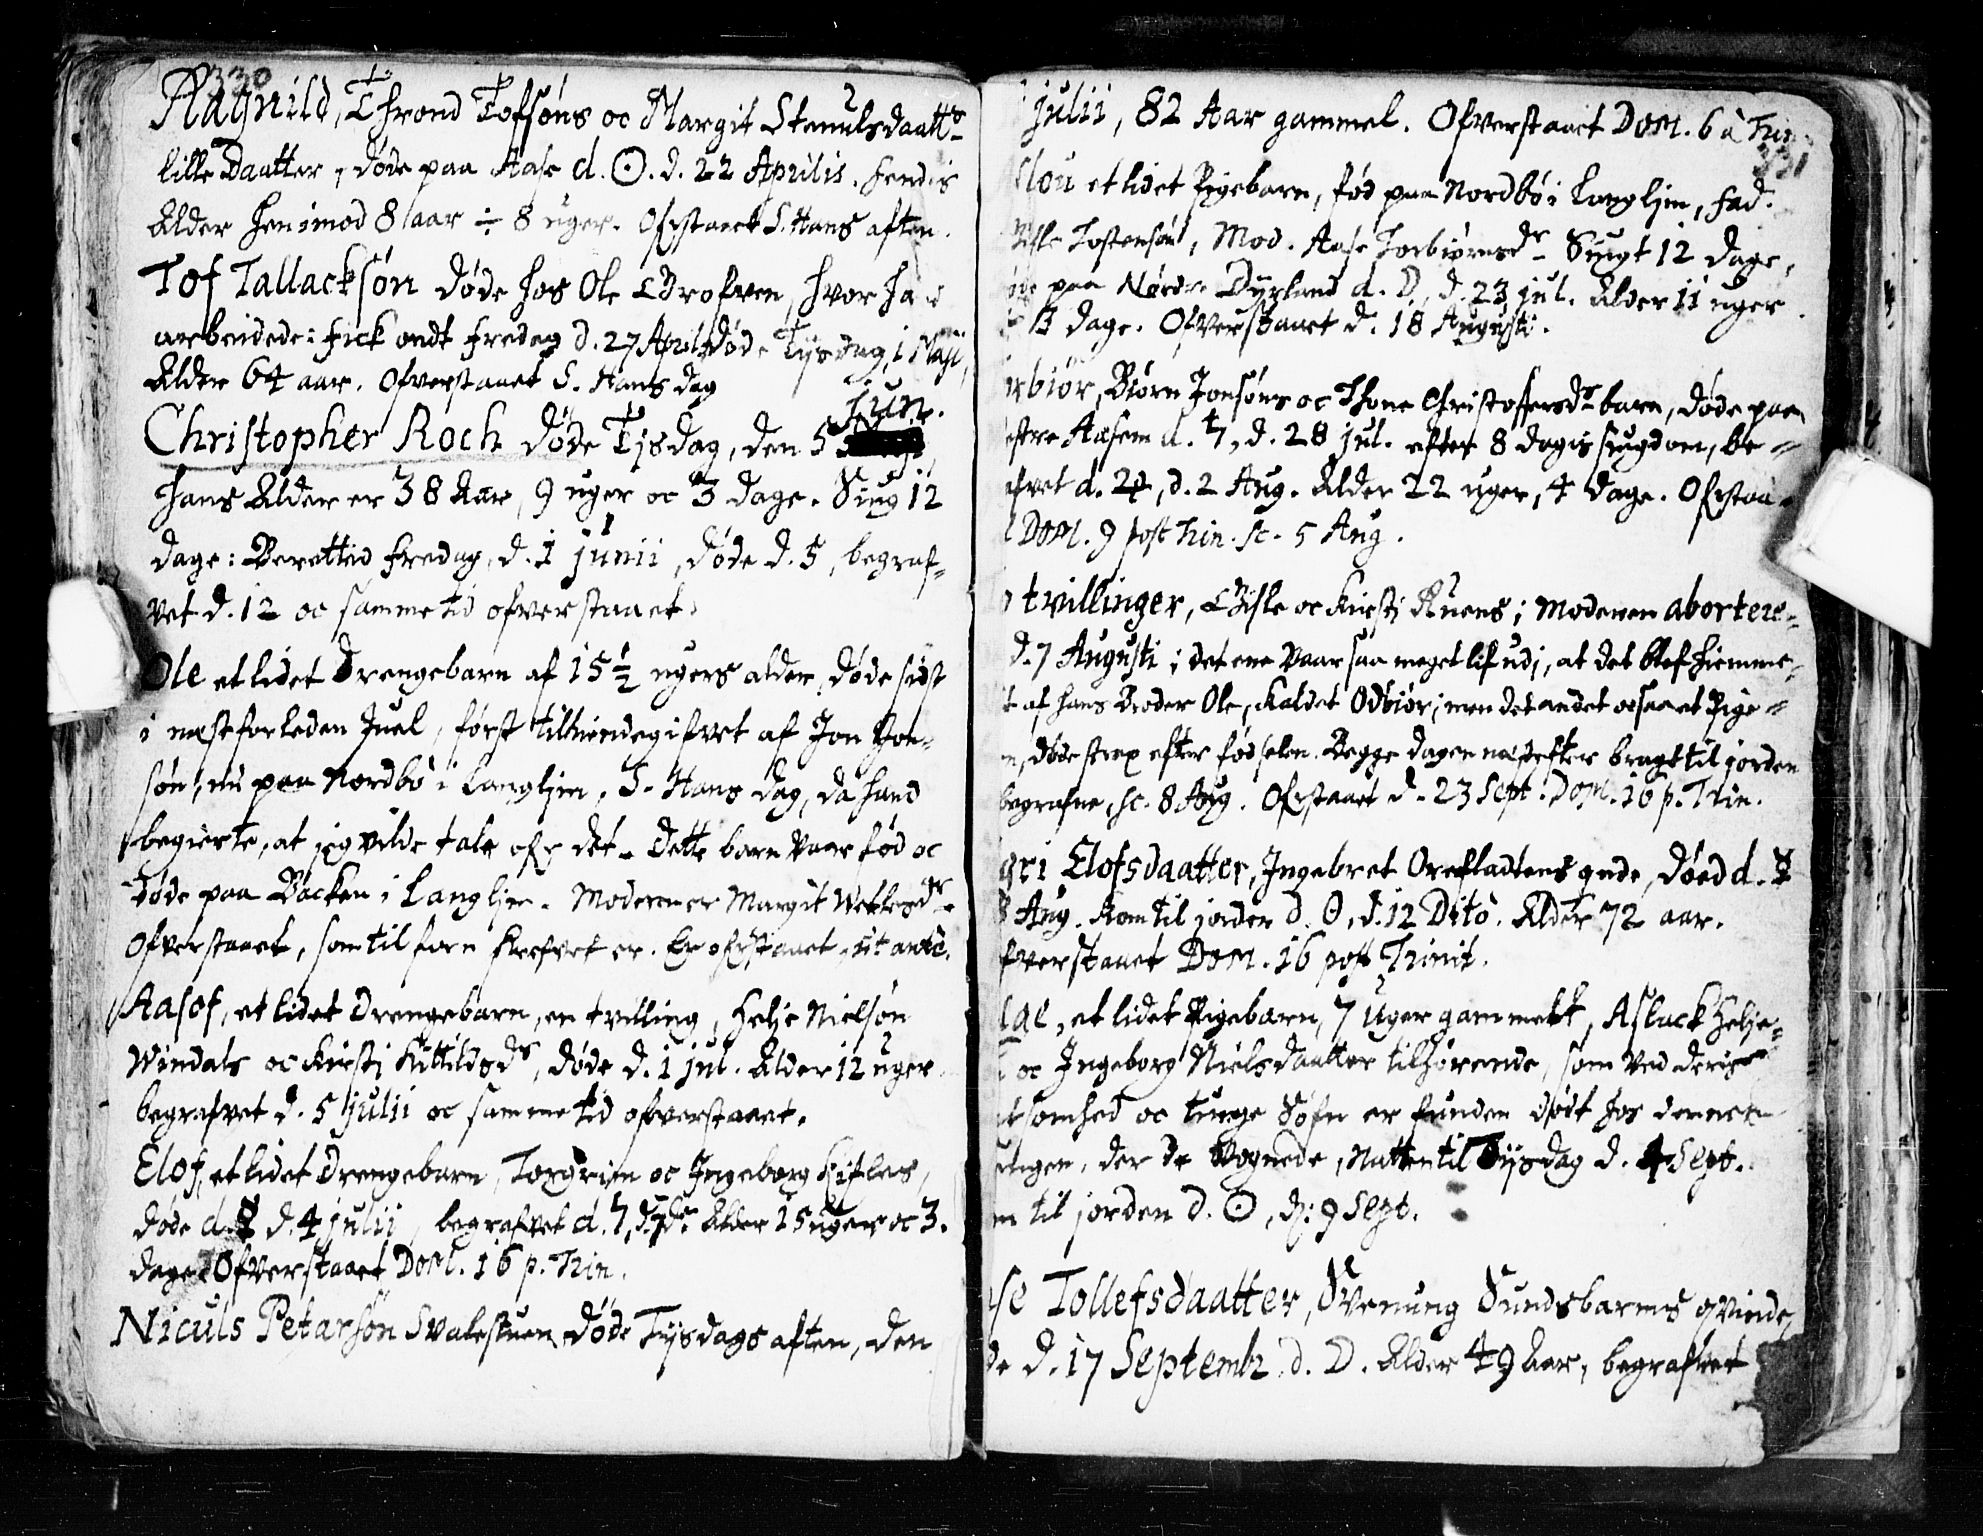 330
Ragnild, Thrond Tofsøns oc Margit Stenulsdaattr
lille Daatter, døde paa Aase d. ☉. d. 22 Aprilis. hendis
Alder hen imod 8 aar ÷ 8 uger. Ofrstaaet S. Hans aften.
Tof Tallacksøn døde hos Ole Grofven, hvor hand
arbeidede: fick ondt fredag d. 27 April, døde Tysdag, 1 Maji,
Alder 64 aar. Ofverstaaet S. Hans dag
Jun.
Christopher Roch døde Tisdag, den 5
hans Alder er 38 Aar, 9 uger oc 3 dage. Siug 12
dage: Berettid fredag, d. 1 junii, døde d. 5, begraf-
vet d. 12 oc samme tid ofverstaaet.
Ole et lidet Drengebarn af 15 1/2 ugers alder, døde sidst
i nestforleden Juel, først tilkiendegifvet af Jon Jon-
søn, nu paa Nordbø i Langlim, S. Hans dag, da hand
begierte, at jeg vilde tale ofr det. Dette barn vaar fød oc
døde paa Backen i Langlim. Moderen er Margit Wetlesdr
Ofverstaaet, som til forn skrefvet er. Er ofrstaaet ut antè.
Aasof, et lidet Drengebarn, en tvilling, Helje Nielsøn
Windals oc Kirsti Kittildsdr, døde d. 1 jul. Alder 12 uger
begrafvet d. 5 julii oc samme tid ofverstaaet.
Elof, et lidet Drengebarn, Torgrim oc Ingeborg Kifles,
døde d. ☿ d. 4 julii, begrafvet d. ♄, d. 7de. Alder 15 uger oc 3.
dage. Ofverstaaet Dom. 16 p. Trin.
Niculs Petersøn Svalestuen døde Tysdags aften, den
julii, 82 Aar gammel. Ofverstaaet Dom. 6 à Trin.
331
slou et lidet Pigebarn, fød paa Nordbø i Langlim, fad.
Gisle Tostensøn, Mod. Aase Torbiørnsdr Siugt 12 dage,
paa Nørdre Dyrland d. ☽, d. 23 jul. Alder 11 uger
3 dage. Ofverstaaet d. 18 Augusti.
rbiør, Biørn Jonsøns oc Thone Christoffersdr barn, døde paa
estre Aasem d. ♄, d. 28 jul. efter 8 dagis siugdom, be-
fvet d. ♃, d. 2 Aug. Alder 22 uger, 4 dage. Ofrstaa-
t Dom. 9 post Trin. sc. 5 Aug.
tvillinger, Gisle oc Kirsti Ruens; Moderen abortere-
d. 7 Augusti; det ene vaar saa meget lif udi, at det blef hiemme-
t af hans Broder Ole, kaldet Odbiør; men det andet ocsaa et Pige-
n, døde strax efter fødselen. Begge dagen næst efter bragt til jorden
begrafne, sc. 8 Aug. Ofrstaaet d. 23 Sept. Dom. 16 p. Trin.
gri Elofsdaatter, Ingebret Orefladtens qnde, døed d. ☿
8 Aug. kom til jorden d. ☉, d. 12 Dito. Alder 72 aar.
fverstaaet Dom. 16 post Trinit.
lae, et lidet Pigebarn, 7 uger gammelt, Aslack Helje-
oc Ingeborg Nielsdaatter tilhørende, som ved deris
tsomhed oc tunge Søfn er funden dødt hos dennem
sengen, der de vognede, Natten til Tysdag d. 4 Sept.
m til jorden d. ☉, d: 9 Sept.
se Tollefsdaatter, Svenung Sundsbarms qvinde,
de d. 17 Septembr. d. ☽. Alder 49 Aar, begrafvet